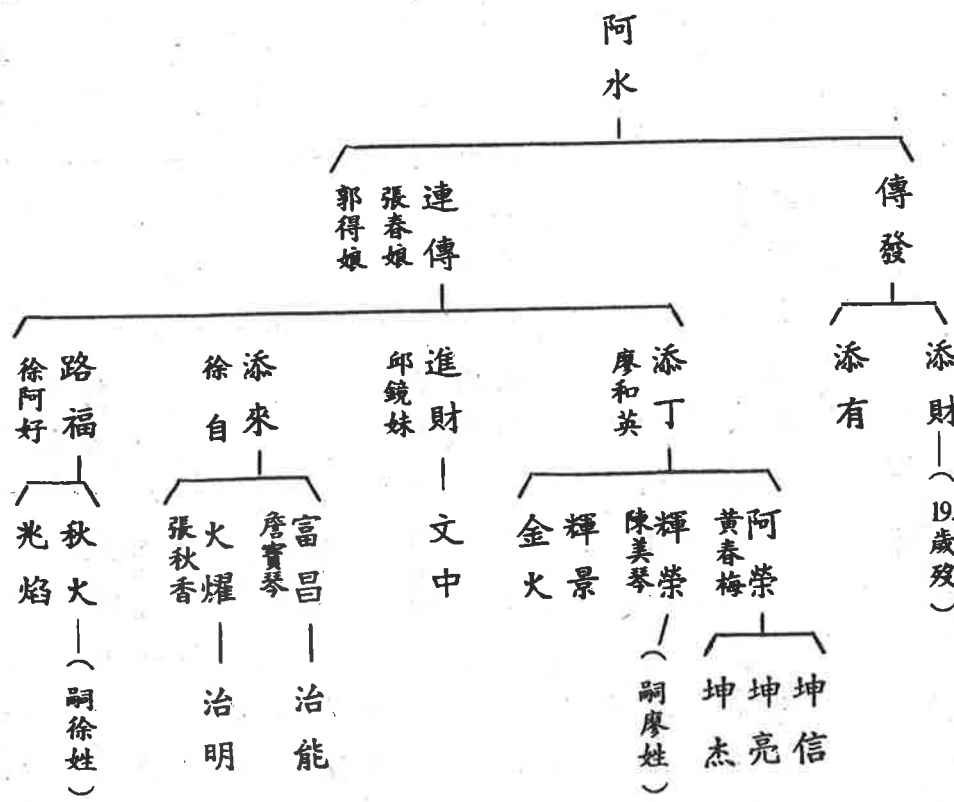 阿水
傳發
連傳
張春娘
郭得娘
添財
(19歲歿)
添有
添丁
廖和英
進財
邱鏡妹
添來
徐自
路福
徐阿好
阿榮
黃春梅
輝榮
陳美琴
(嗣廖姓)
輝景
金火
文中
富昌
詹寶琴
火燿
張秋香
秋火
(嗣徐姓)
兆焰
坤信
坤亮
坤杰
治能
治明